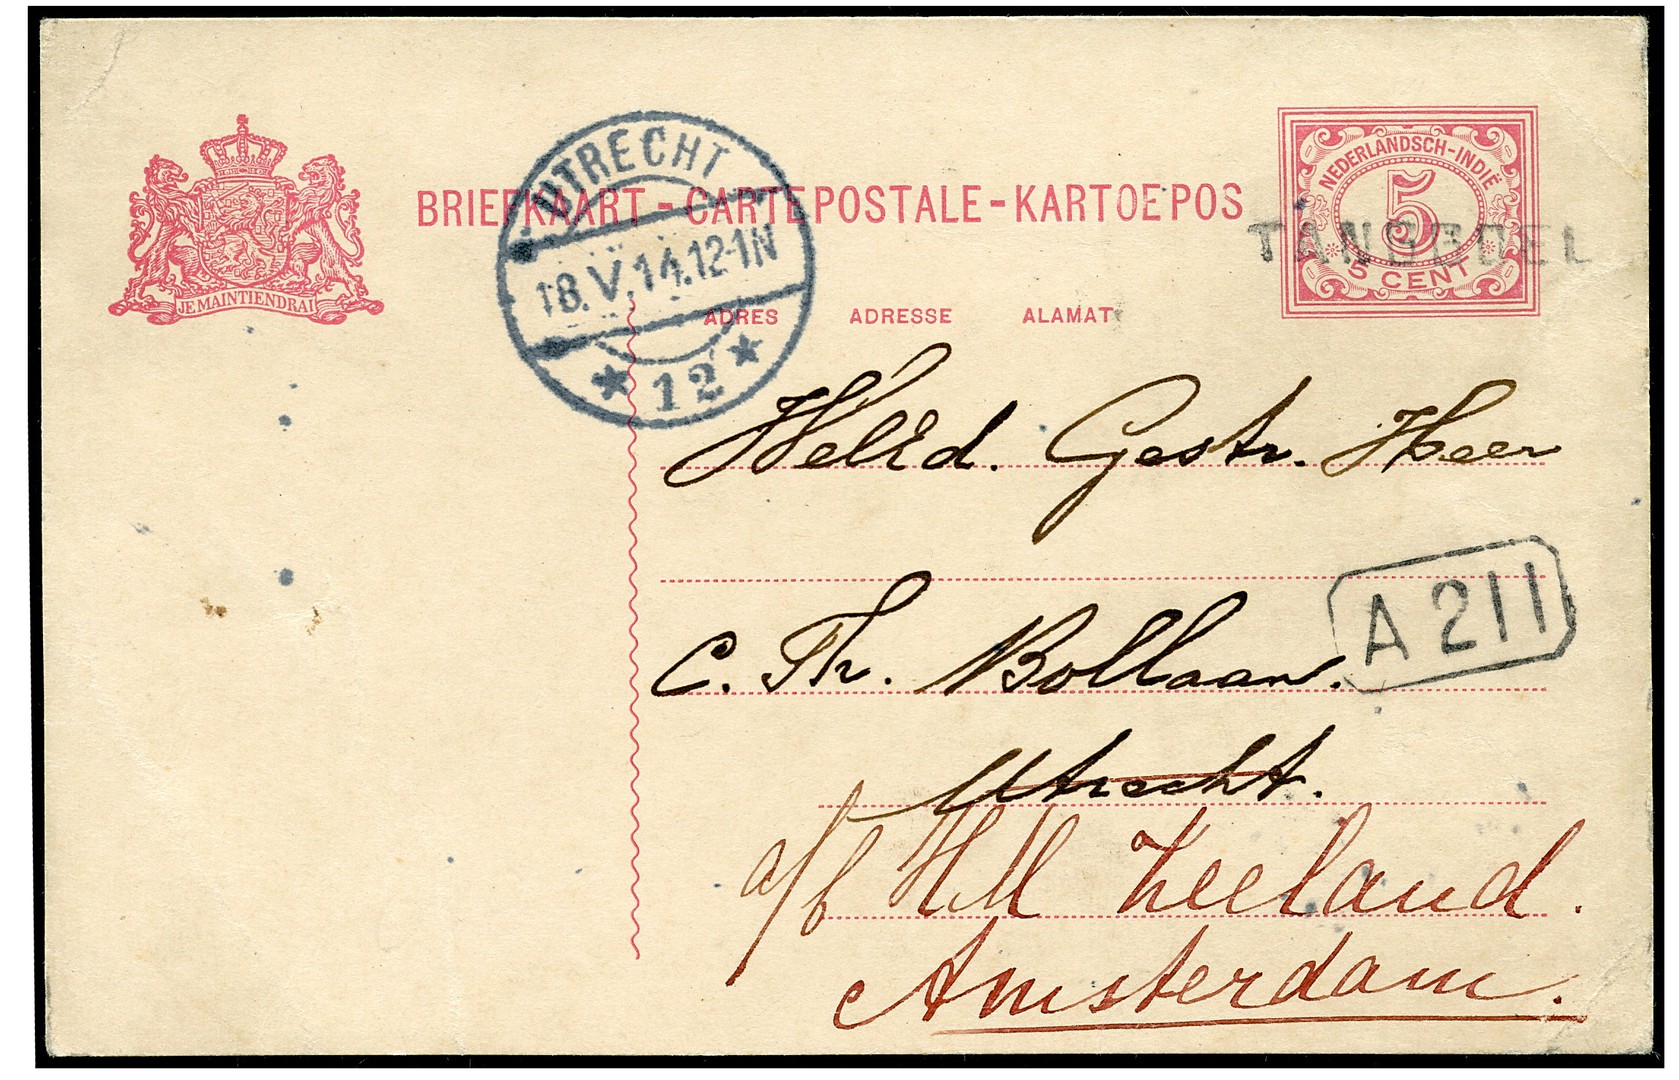 UTRECHT
18.V.14.12-1N
12
BRIEFKAART - CARTE POSTALE - KARTOEPOS
NEDERLANDSCH-INDIË
5
5 CENT
JE MAINTIENDRAI
ADRES ADRESSE ALAMAT
WelEd. Gestr. Heer
A 211
C. Th. Bollaan.
Utrecht.
a/b HM Zeeland.
Amsterdam.